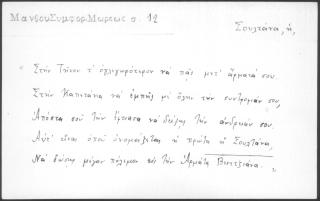 ΜανθουΣυμφορΜωρεως σ. 12
Σουλτάνα, ἡ,
Στὴν Τῆνον τ' ὀγληγορότερον νὰ πᾶς μετ' ἄρματά σου.
Στὴν Καπιτάνα νὰ ἐμπῆς μὲ ὅλην τὴν συντροφιάν σου,
Ἀπόστα σοῦ τὴν ἔφτιασα νὰ δείξῃς τὴν ἀνδρειάν σου.
Αὐτὴ εἶναι ὁποῦ ὀνομάζεται ἡ πρώτη ἡ Σουλτάνα,
Νὰ δώσῃς μέγαν πόλεμον εἰς τὴν Ἀρμάτα Βενετζιάνα.